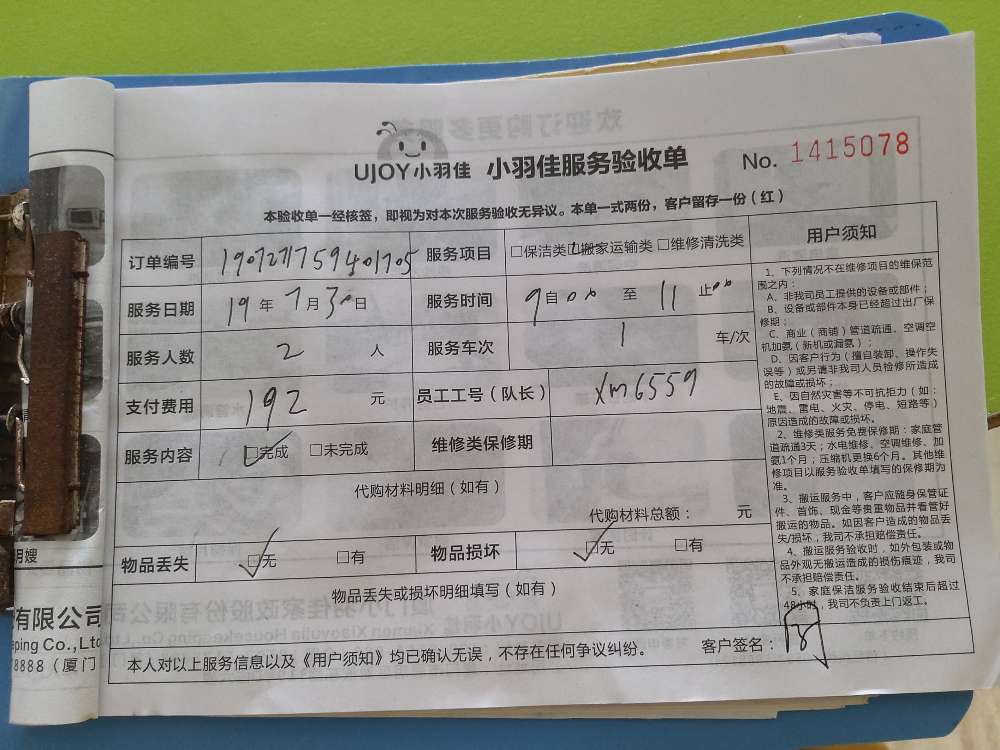 UJOY小羽佳 小羽佳服务验收单 No. 1415078
本验收单一经核签，即视为对本次服务验收无异议。本单一式两份，客户留存一份（红）
订单编号 190727175940170​5 服务项目 □保洁类□搬家运输类 □维修清洗类
服务日期 19年7月30日 服务时间 9自00 至 11止00
服务人数 2 人 服务车次 1 车/次
支付费用 192 元 员工工号（队长） xm6559
服务内容 □完成 □未完成 维修类保修期
代购材料明细（如有）
代购材料总额： 元
物品丢失 □无 □有 物品损坏 □无 □有
物品丢失或损坏明细填写（如有）
本人对以上服务信息以及《用户须知》均已确认无误，不存在任何争议纠纷。 客户签名：
用户须知
1、下列情况不在维修项目的维保范
围之内：
A、非我司员工提供的设备或部件；
B、设备或部件本身已经超过出厂保
修期；
C、商业（商铺）管道疏通、空调空
机加氨（新机或漏氨）；
D、因客户行为（擅自装卸、操作失
误等）或另请非我司人员检修所造成
的故障或损坏；
E、因自然灾害等不可抗拒力（如：
地震、雷电、火灾、停电、短路等）
原因造成的故障或损坏。
2、维修类服务免费保修期：家庭管
道疏通3天；水电维修、空调维修、加
氨1个月；压缩机更换6个月。其他维
修项目以服务验收单填写的保修期为
准。
3、搬运服务中，客户应随身保管证
件、首饰、现金等贵重物品并看管好
搬运的物品。如因客户造成的物品丢
失/损坏，我司不承担赔偿责任。
4、搬运服务验收时，如外包装或物
品外观无搬运造成的损伤痕迹，我司
不承担赔偿责任。
5、家庭保洁服务验收结束后超过
48小时，我司不负责上门返工。
月嫂
有限公司
ping Co.,Ltd
8888（厦门